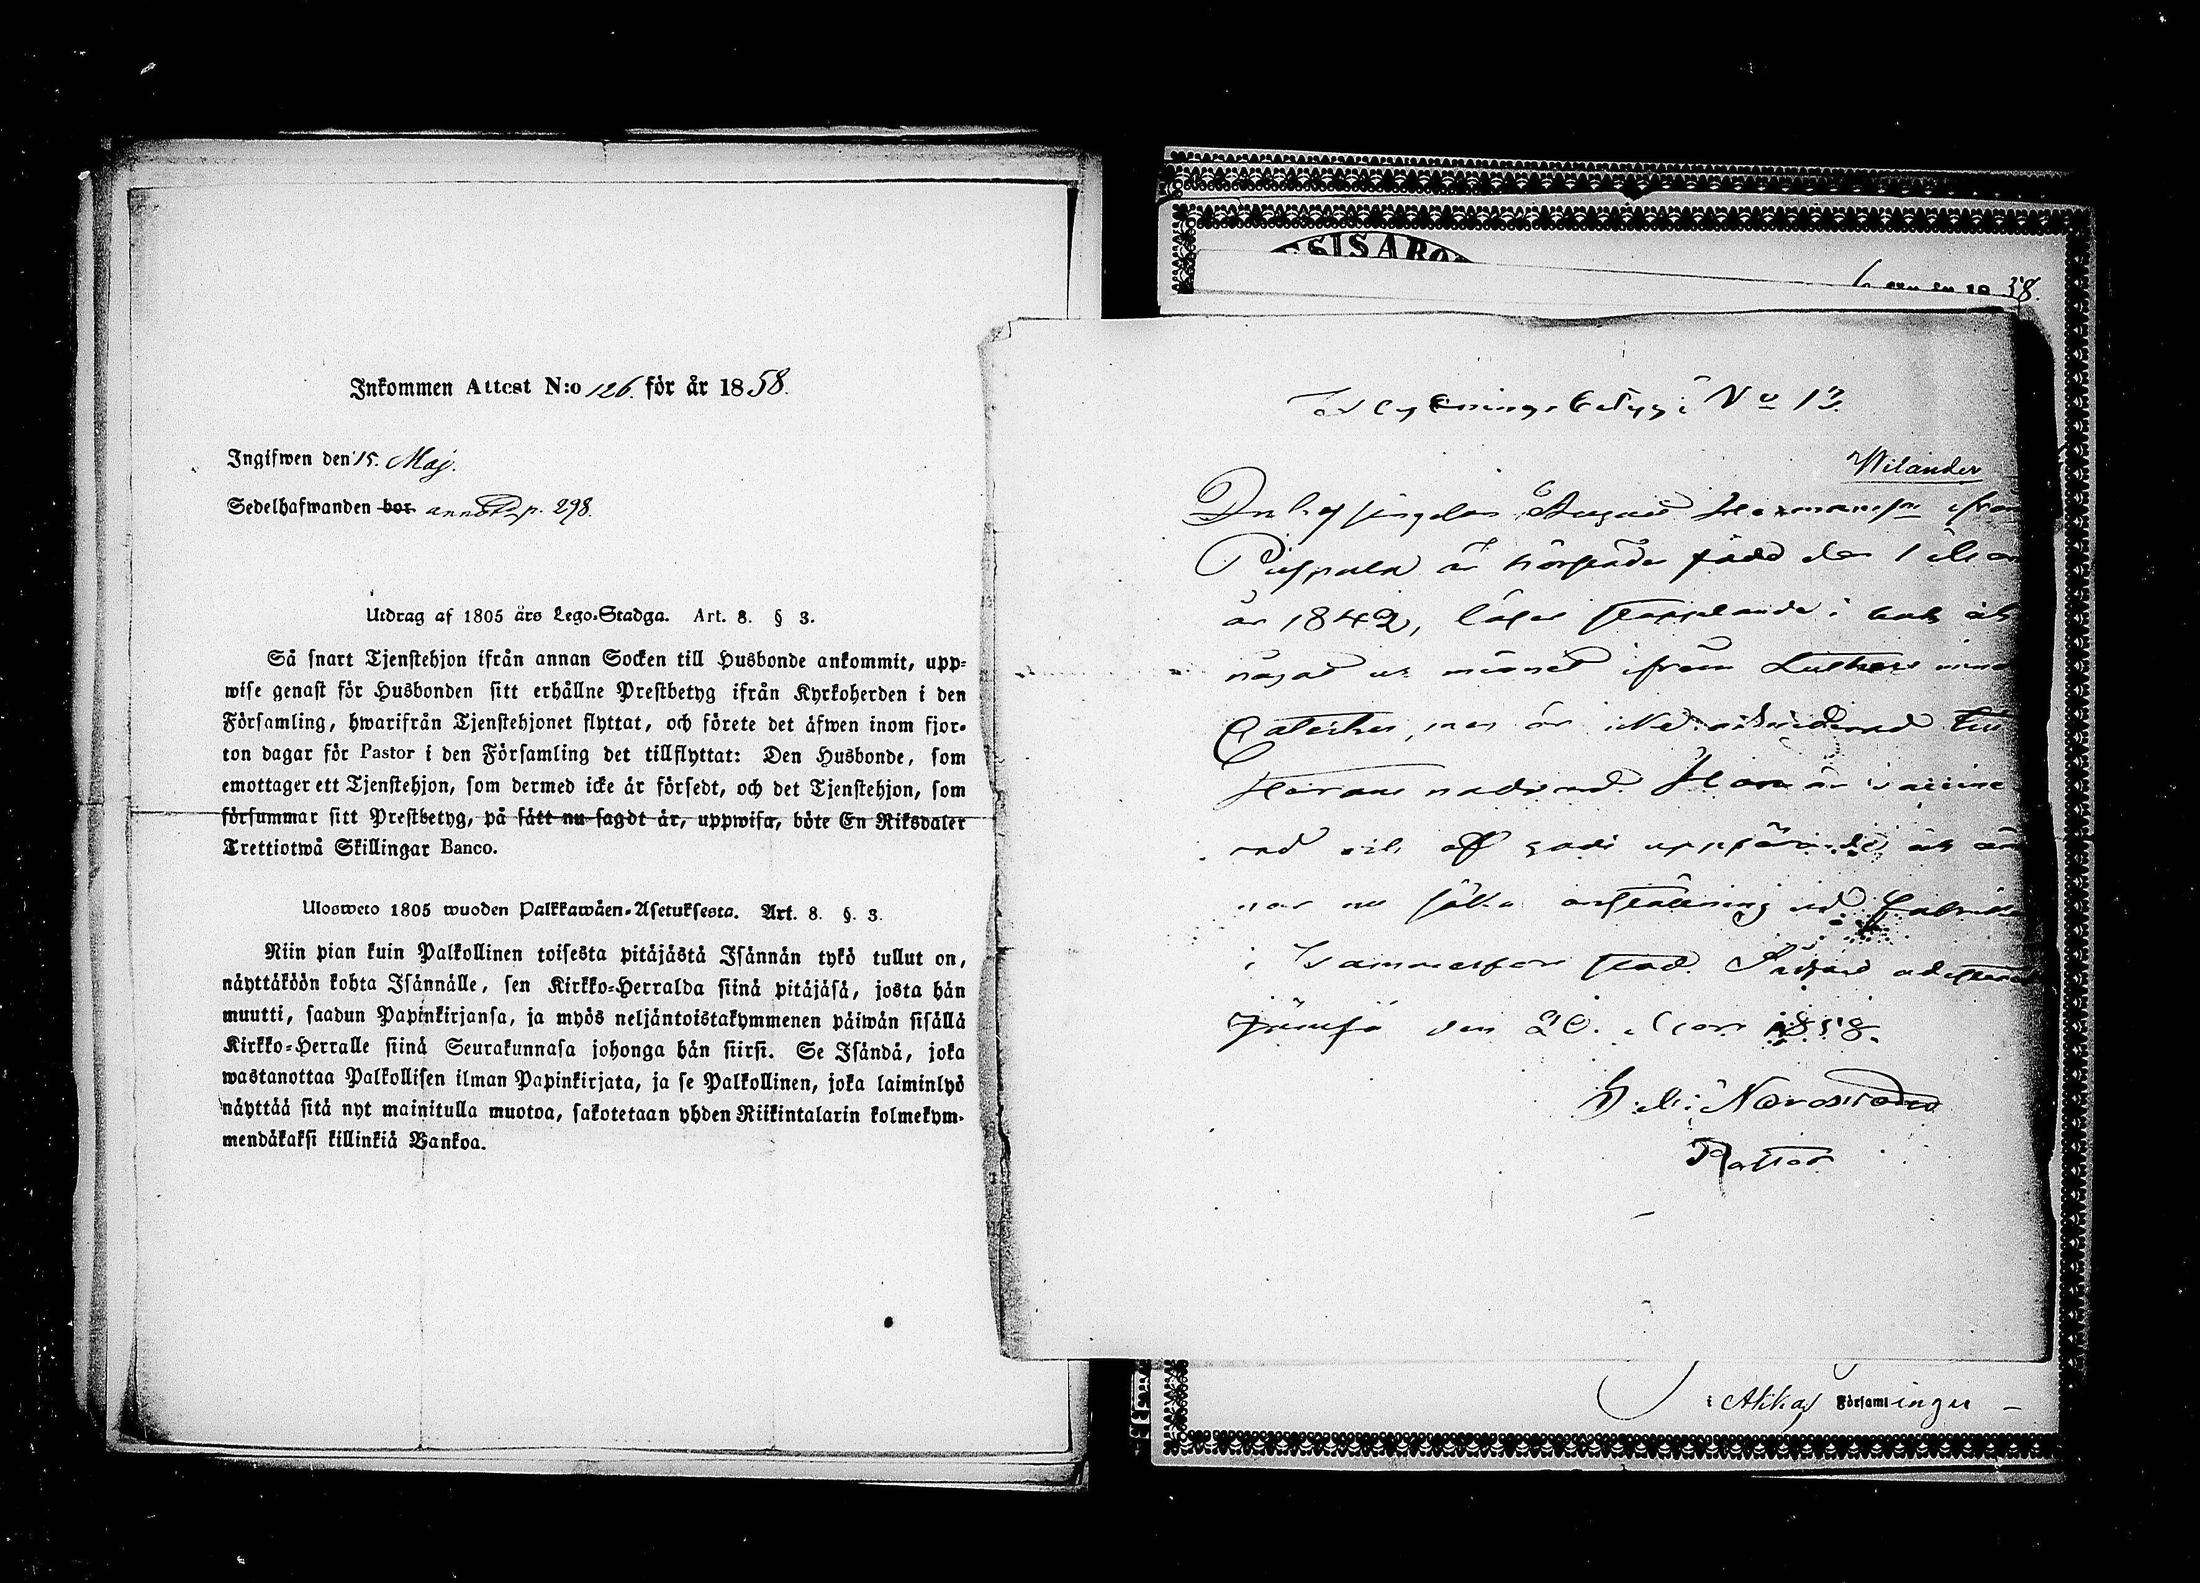 Inkommen Attest N:o 126. för år 1858.
Ingifwen den 15. Maj.
Sedelhafwanden bor annot. p. 298.
Utdrag af 1805 års Lego-Stadga. Art. 8. § 3.
Så snart Tjenstehjon ifrån annan Socken till Husbonde ankommit, upp-
wise genast för Husbonden sitt erhållne Prestbetyg ifrån Kyrkoherden i den
Församling, hwarifrån Tjenstehjonet flyttat, och förete det äfwen inom fjor-
ton dagar för Pastor i den Församling det tillflyttat: Den Husbonde, som
emottager ett Tjenstehjon, som dermed icke är försedt, och det Tjenstehjon, som
försummar sitt Prestbetyg, på sätt nu sagdt är, uppwisa, böte En Riksdaler
Trettiotwå Skillingar Banco.
Ulosweto 1805 wuoden Palkkawäen-Asetuksesta. Art. 8. §. 3.
Niin pian kuin Palkollinen toisesta pitäjästä Isännän tykö tullut on,
näyttäköön kohta Isännälle, sen Kirkko-Herralda siinä pitäjäsä, josta hän
muutti, saadun Papinkirjansa, ja myös neljäntoistakymmenen päiwän sisällä
Kirkko-Herralle siinä Seurakunnasa johonga hän siirsi. Se Isändä, joka
wastanottaa Palkollisen ilman Papinkirjata, ja se Palkollinen, joka laiminlyö
näyttää sitä nyt mainitulla muotoa, sakotetaan yhden Riikintalarin kolmekym-
mendäkaksi killinkiä Bankoa.
38.
No 13.
Wilander
August Hermansson ifrån
är härstädes född den 1
år 1842, läser stapplande i bok och
något ur minnet ifrån Luthers
Cateches, men är icke admitterad till
Herrans nattvard. Han är vaccine-
rad och af godt uppförande och
nar nu söka anställning vid
i Tammerfors stad.
Jämsä den 20. Mars 1858.
Pastor
i Akkas Församlingen